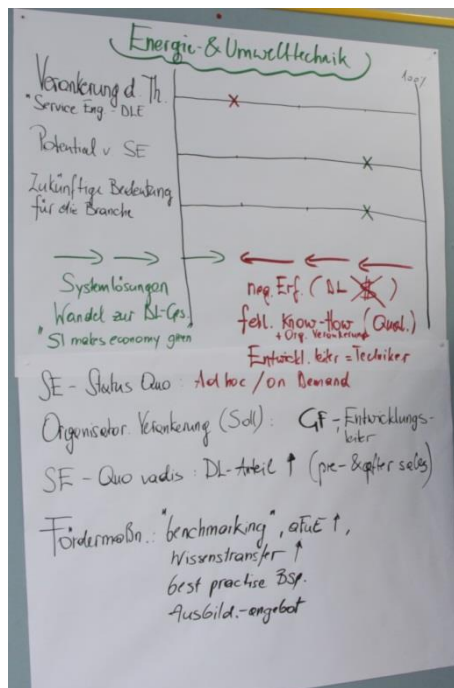 Energie-&Umwelttechnik
Verankerung d. Th.
"Service Eng.-DLE
100%
Potential v SE
Zukünftige Bedeutung
für die Branche
Systemlösungen
Wandel zur DL-Ges.
"SI makes economy green
neg. Erf. (DL $)
fehl. Know-How (Qual.)
+ Org. Verankerung
Entwickl. leiter = Techniker
SE-Status Quo: Ad hoc / on Demand
Organisator. Verankerung (Soll): GF-Entwicklungs-
leiter
SE-Quo vadis: DL-Anteil ↑ (pre-&after sales)
Fördermaßn.: "benchmarking", aFuE ↑,
Wissenstransfer ↑
best practise Bsp.
Ausbild.-angebot